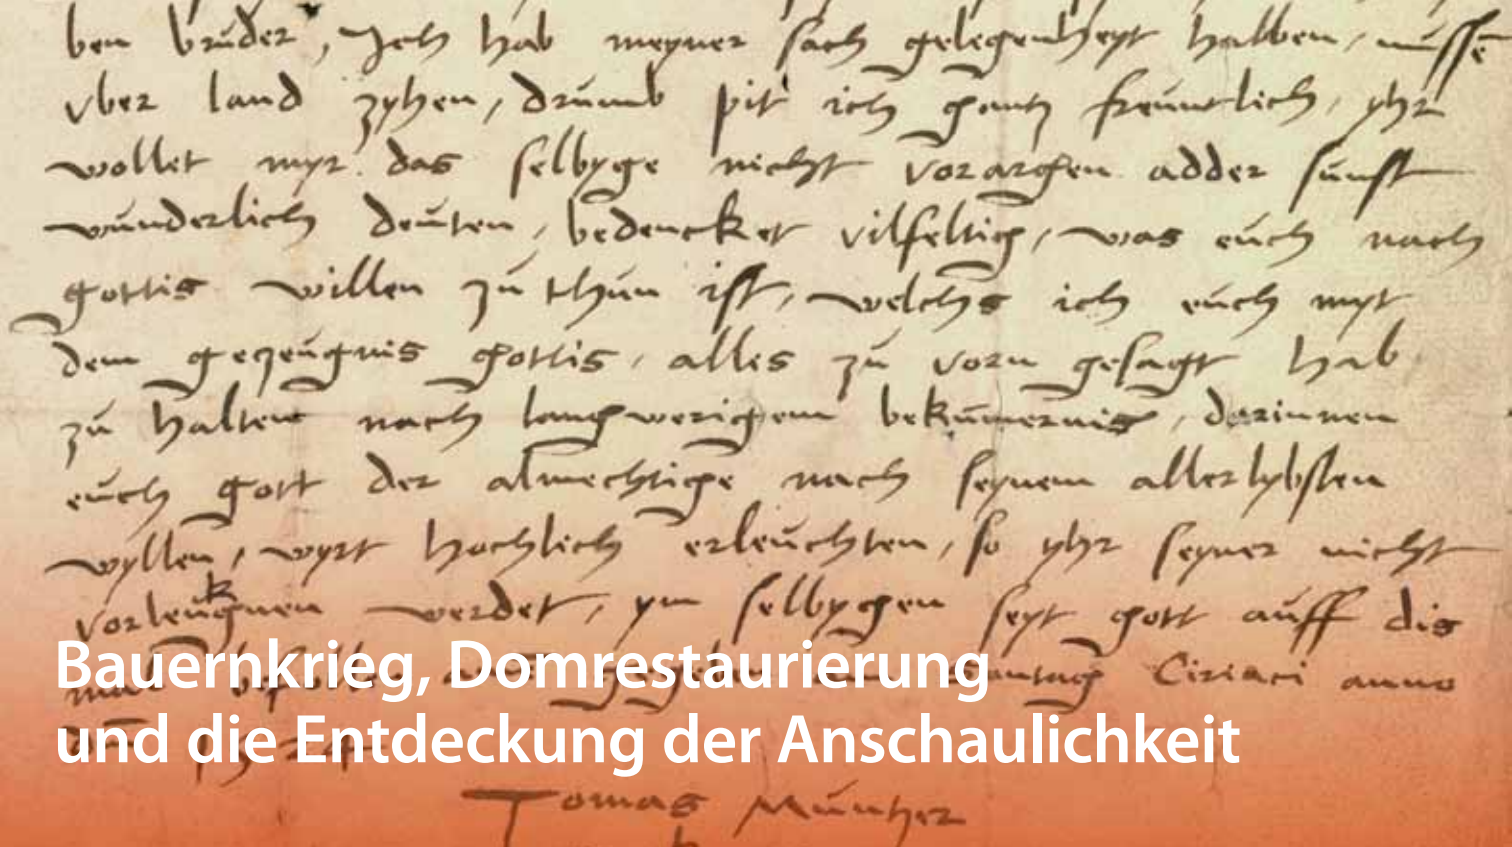 ben bruder, Ich hab meyner sach gelegenheyt halben, müssē
vber land zyhen, drumb pit ich gantz freuntlich, yhr
wollet myr das selbyge nicht vorargen adder sunst
wunderlich deuten, bedencket vilfeltig, was euch nach
gottis willen zu thun ist, welchs ich euch myt
dem gezeugnis gottis, alles zu vorn gesagt hab
zu halten nach langwerigem bekummernis, darinnen
euch gott der almechtige nach seynem allerlybsten
wyllen, wyrt hochlich erleuchten, so yhr seyner nicht
vorleukgnen werdet, ym selbygen seyt gott auff dis
Bauernkrieg, Domrestaurierung
mal Ciriaci anno
und die Entdeckung der Anschaulichkeit
Tomas Müntzer